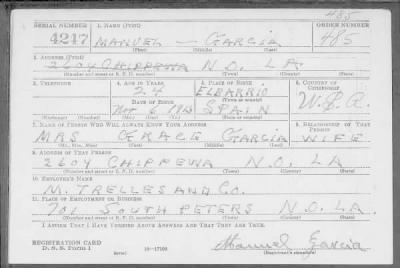 485
SERIAL NUMBER 1. NAME (Print) ORDER NUMBER
4247 MANUEL — GARCIA 485
(First) (Middle) (Last)
2. ADDRESS (Print)
2604 CHIPPEWA N.O. LA.
(Number and street or R. F. D. number) (Town) (County) (State)
3. TELEPHONE 4. AGE IN YEARS 5. PLACE OF BIRTH 6. COUNTRY OF CITIZENSHIP
24 ELBARRIO
DATE OF BIRTH (Town or county)
Nov SPAIN
(Exchange) (Number) (Mo.) (Day) (Yr.) (State or country)
7. NAME OF PERSON WHO WILL ALWAYS KNOW YOUR ADDRESS 8. RELATIONSHIP OF THAT PERSON
MRS GRACE GARCIA WIFE
(Mr., Mrs., Miss) (First) (Middle) (Last)
9. ADDRESS OF THAT PERSON
2604 CHIPPEWA N.O. LA
(Number and street or R. F. D. number) (Town) (County) (State)
10. EMPLOYER'S NAME
M. TRELLES AND CO.
11. PLACE OF EMPLOYMENT OR BUSINESS
701 SOUTH PETERS N.O. LA
(Number and street or R. F. D. number) (Town) (County) (State)
I AFFIRM THAT I HAVE VERIFIED ABOVE ANSWERS AND THAT THEY ARE TRUE.
REGISTRATION CARD
D. S. S. Form 1 (over) 16—17105 Manuel Garcia
(Registrant's signature)